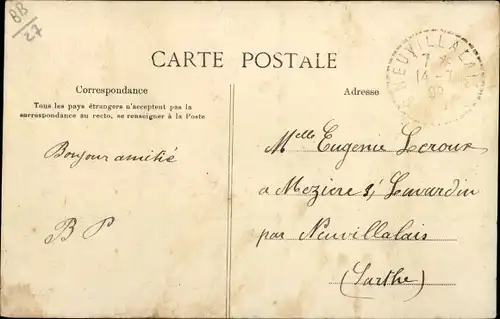 BB
27
CARTE POSTALE
NEUVILLALAIS
7
14-7
Correspondance
Tous les pays étrangers n'acceptent pas la
correspondance au recto, se renseigner à la Poste
Adresse
Bonjour amitié
B P
Melle Eugenie Leroux
a Meziere s/ Lavardin
par Neuvillalais
(Sarthe)